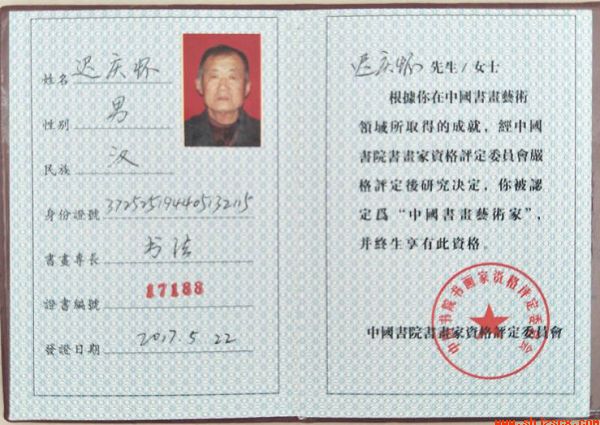 姓名 迟庆怀
性别 男
民族 汉
身份證號 372525194405132115
書畫專長 书法
證書編號 17188
發證日期 2017.5.22
迟庆怀 先生/女士
根據你在中國書畫藝術
領域所取得的成就，經中國
書院書畫家資格評定委員會嚴
格評定後研究決定，你被認
定爲“中國書畫藝術家”，
并終生享有此資格。
中國書院書畫家資格評定委員會
中国书院书画家资格评定委员会